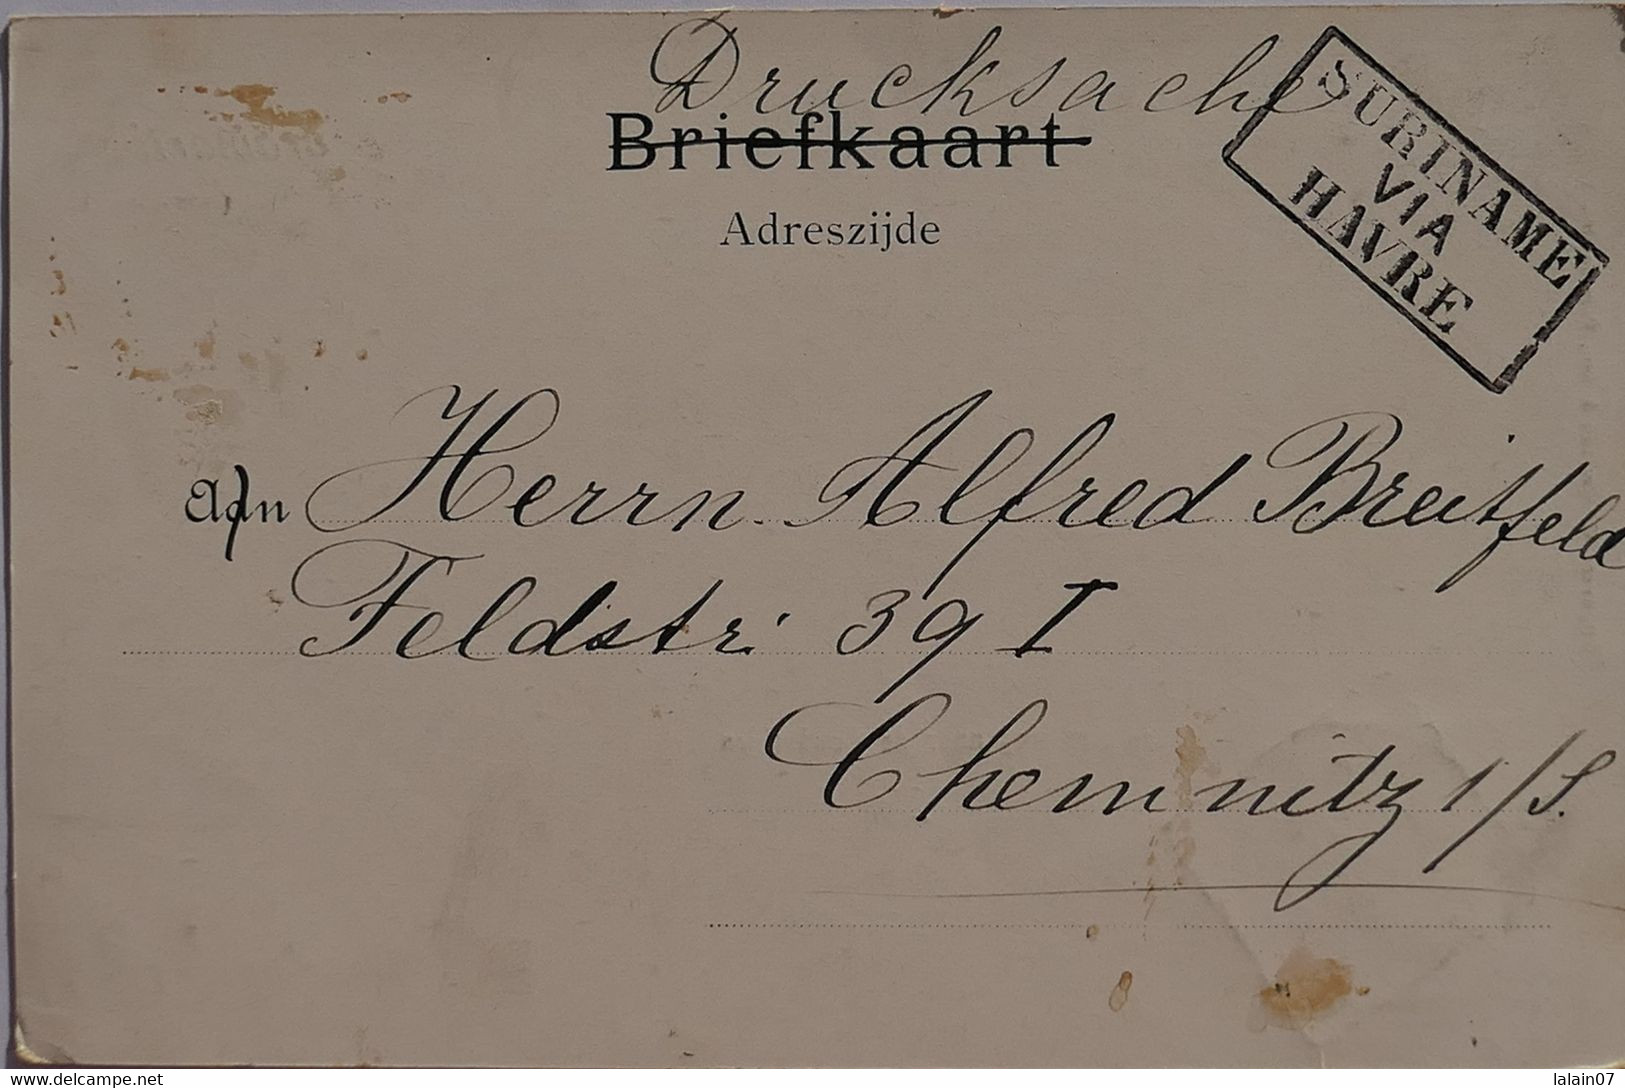 Drucksache
Briefkaart
Adreszijde
SURINAME
VIA
HAVRE
Aan Herrn Alfred Breitfeld
Feldstr. 39 I
Chemnitz 1/S.
www.delcampe.net
lalain07